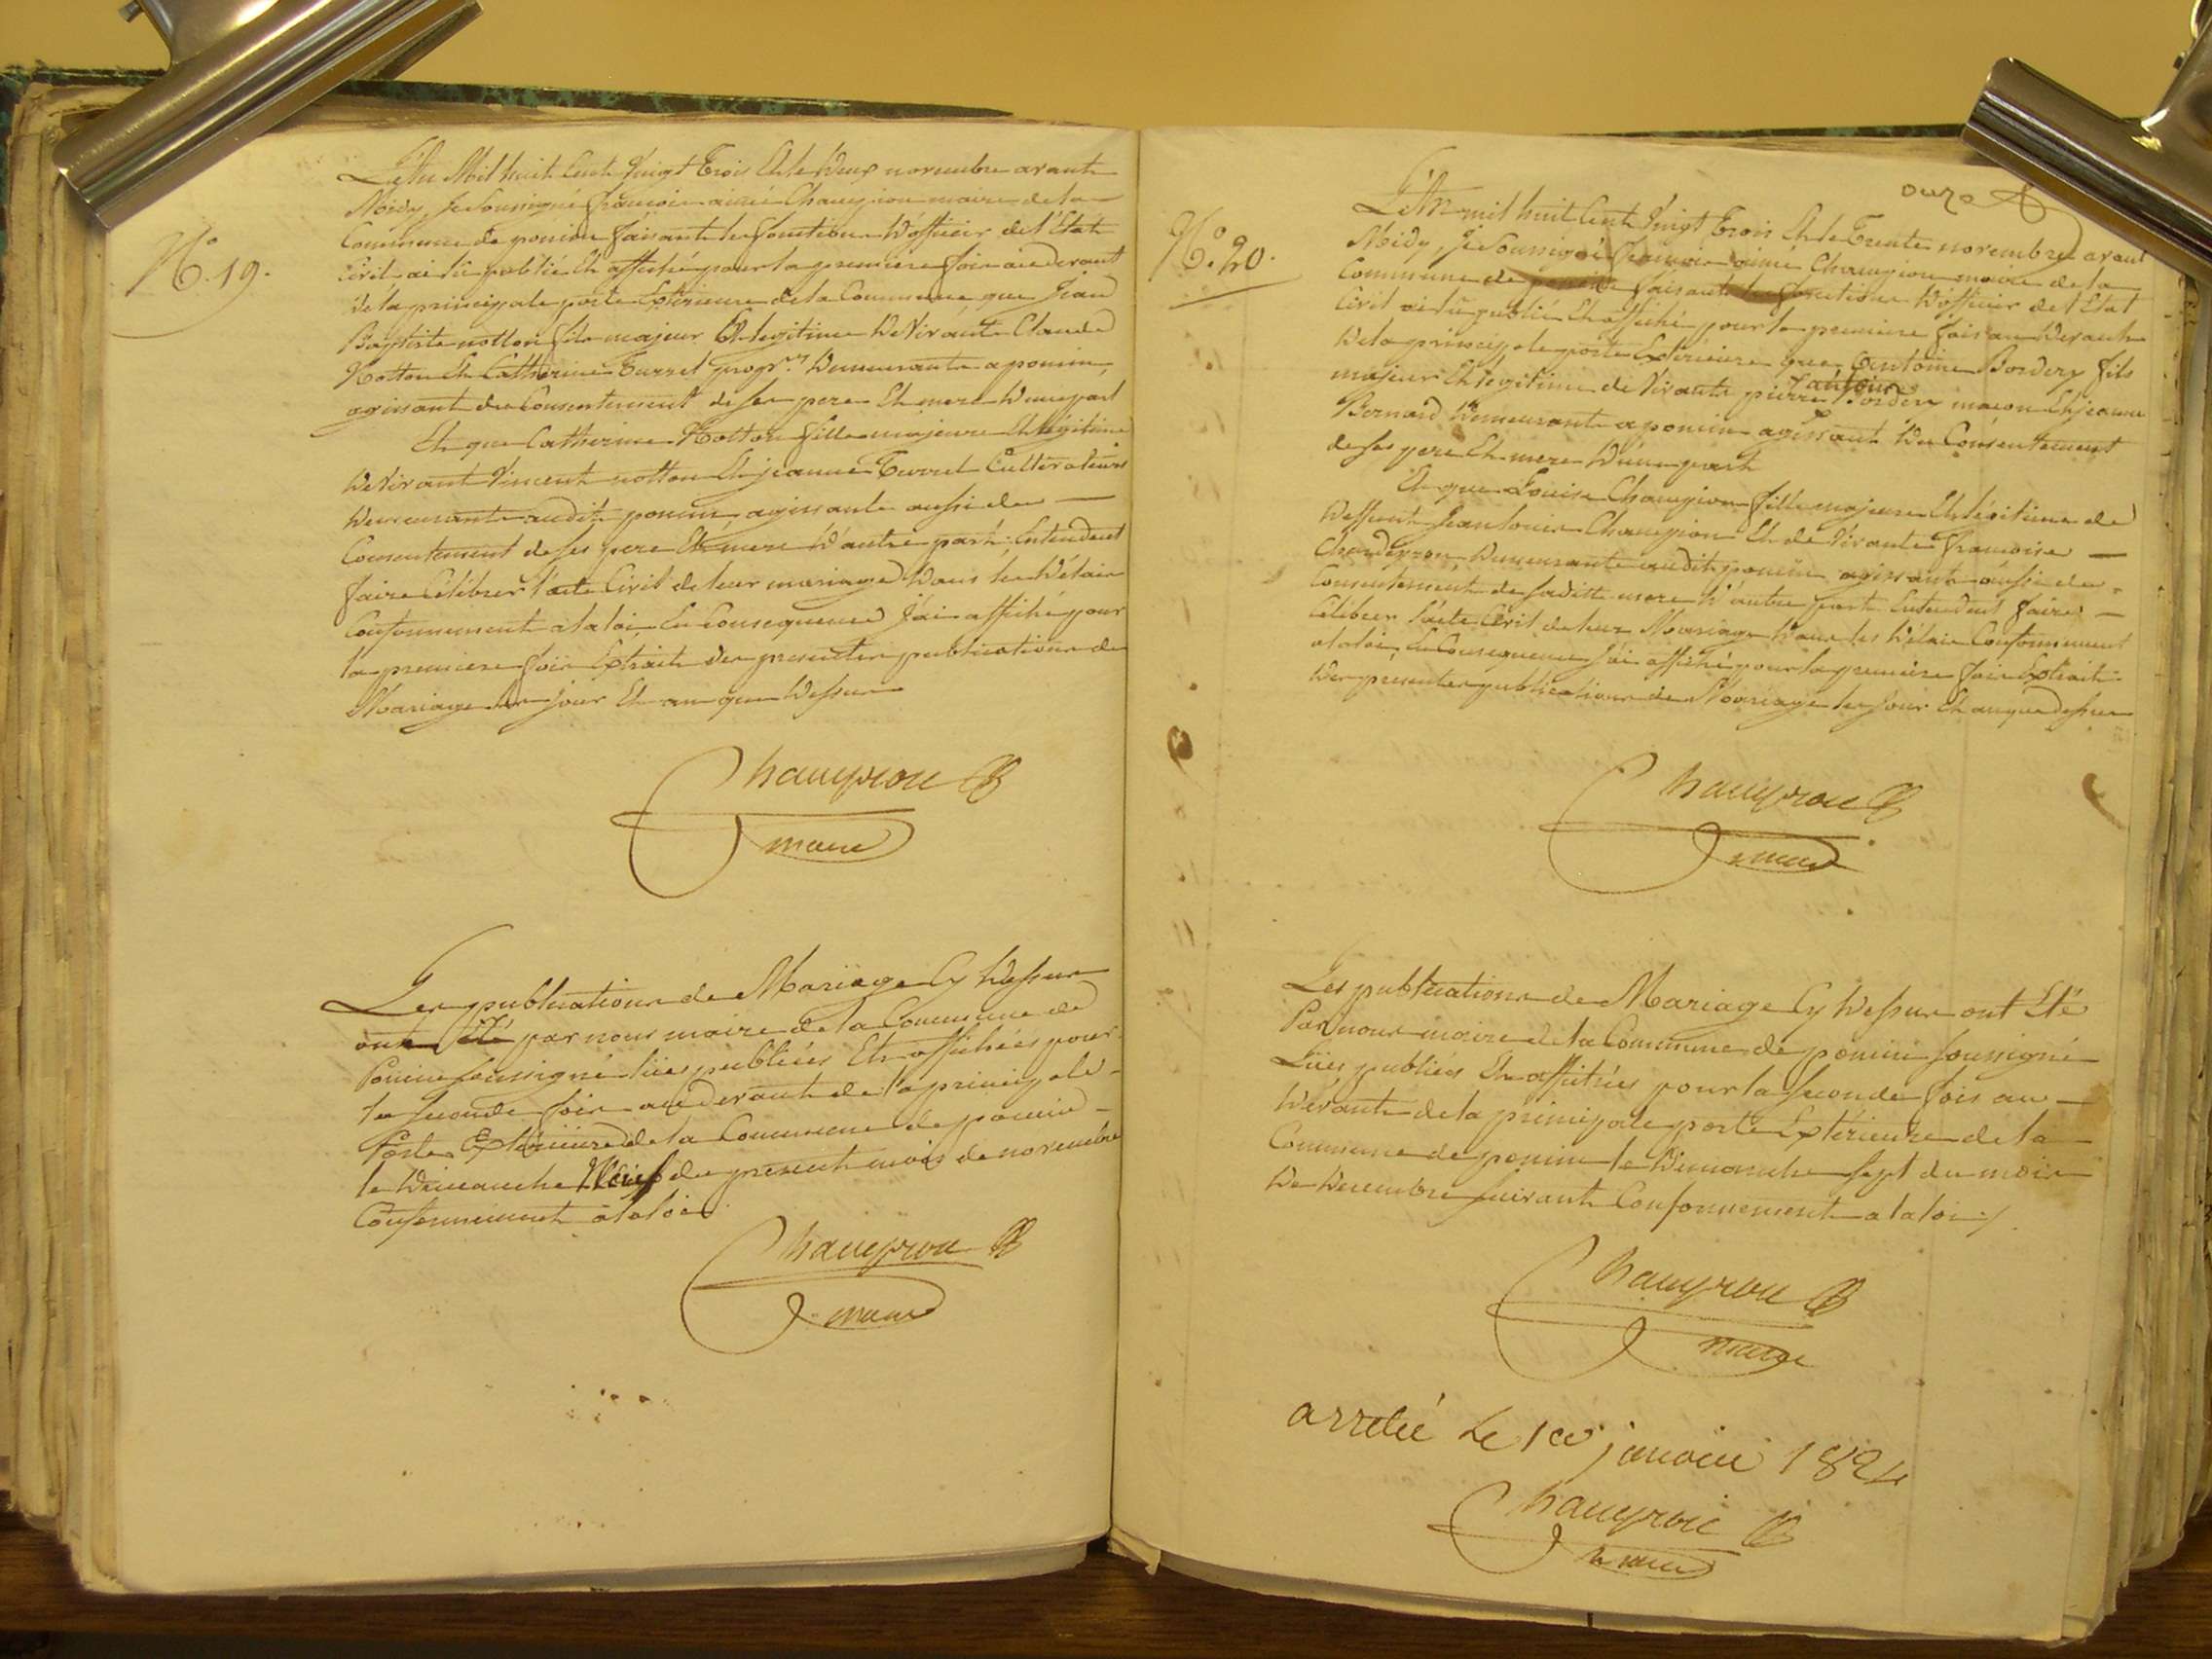 N.o 19.
L'An Mil huit Cent Vingt Trois Et le Deux novembre avant
Midy, Je Soussigné françois aimé Champion maire de la
Commune de ponçin faisant les fonctions D'officier de l'État
Civil, ai lu publié Et affiché pour la premiere fois au devant
De la principale porte Extérieure de la Commune, que Jean
Baptiste notton fils majeur Et legitime De Vivants Claude
Notton Et Catherine Turrel propr.res Demeurants a ponçin,
agissant du Consentement de ses pere Et mere D'une part
Et que Catherine Notton fille majeure Et légitime
De Vivant Vincent notton Et jeanne Turrel Cultivateurs
Demeurants audit ponçin, agissante aussi du
Consentement de ses pere Et mere D'autre part; Entendent
faire Célébrer l'acte Civil de leur mariage Dans les Délais
Conformement à la loi, En Consequence J'ai affiché pour
la premiere fois Extrait des presentes publications de
Mariage les jour Et an que Dessus
Champion
maire
Les publications de Mariage Cy Dessus
ont Eté par nous maire de la Commune de
Ponçin soussigné lües publiées Et affichées pour
la seconde fois au devant de la principale
Porte Extérieure de la Commune de ponçin
le Dimanche Neuf du present mois de novembre
Conformement à la loi
Champion
maire
onze
N.o 20.
L'An mil huit Cent Vingt Trois Et le Trente novembre avant
Midy, Je Soussigné françois aimé Champion maire de la
Commune de ponçin faisant les fonctions D'officier de l'Etat
Civil ai lu publié Et affiché pour la premiere fois au Devant
De la principale porte Extérieure que Antoine Bordery fils
majeur Et legitime de Vivants pierre antoine Bordery maçon Et jeanne
Bernard Demeurants a ponçin agissant Du Consentement
de ses pere Et mere D'une part
Et que Louise Champion fille majeure Et légitime de
Deffunt Jean louis Champion Et de Vivante françoise
Demeurante audit ponçin agissante aussi du
Consentement de sa ditte mere D'autre part Entendent faire
Célébrer l'acte Civil de leur Mariage Dans les Délais Conformement
a la loi, En Consequence J'ai affiché pour la premiere fois Extrait
Des presentes publications de Mariage les Jour Et an que Dessus
Champion
maire
Les publications de Mariage Cy Dessus ont Eté
Par nous maire de la Commune de ponçin soussigné
Lües publiées Et affichées pour la seconde fois au
Devant de la principale porte Extérieure de la
Commune de ponçin le Dimanche sept du mois
De Decembre suivant Conformement a la loi
Champion
maire
arreté le 1er janvier 1824
Champion
maire